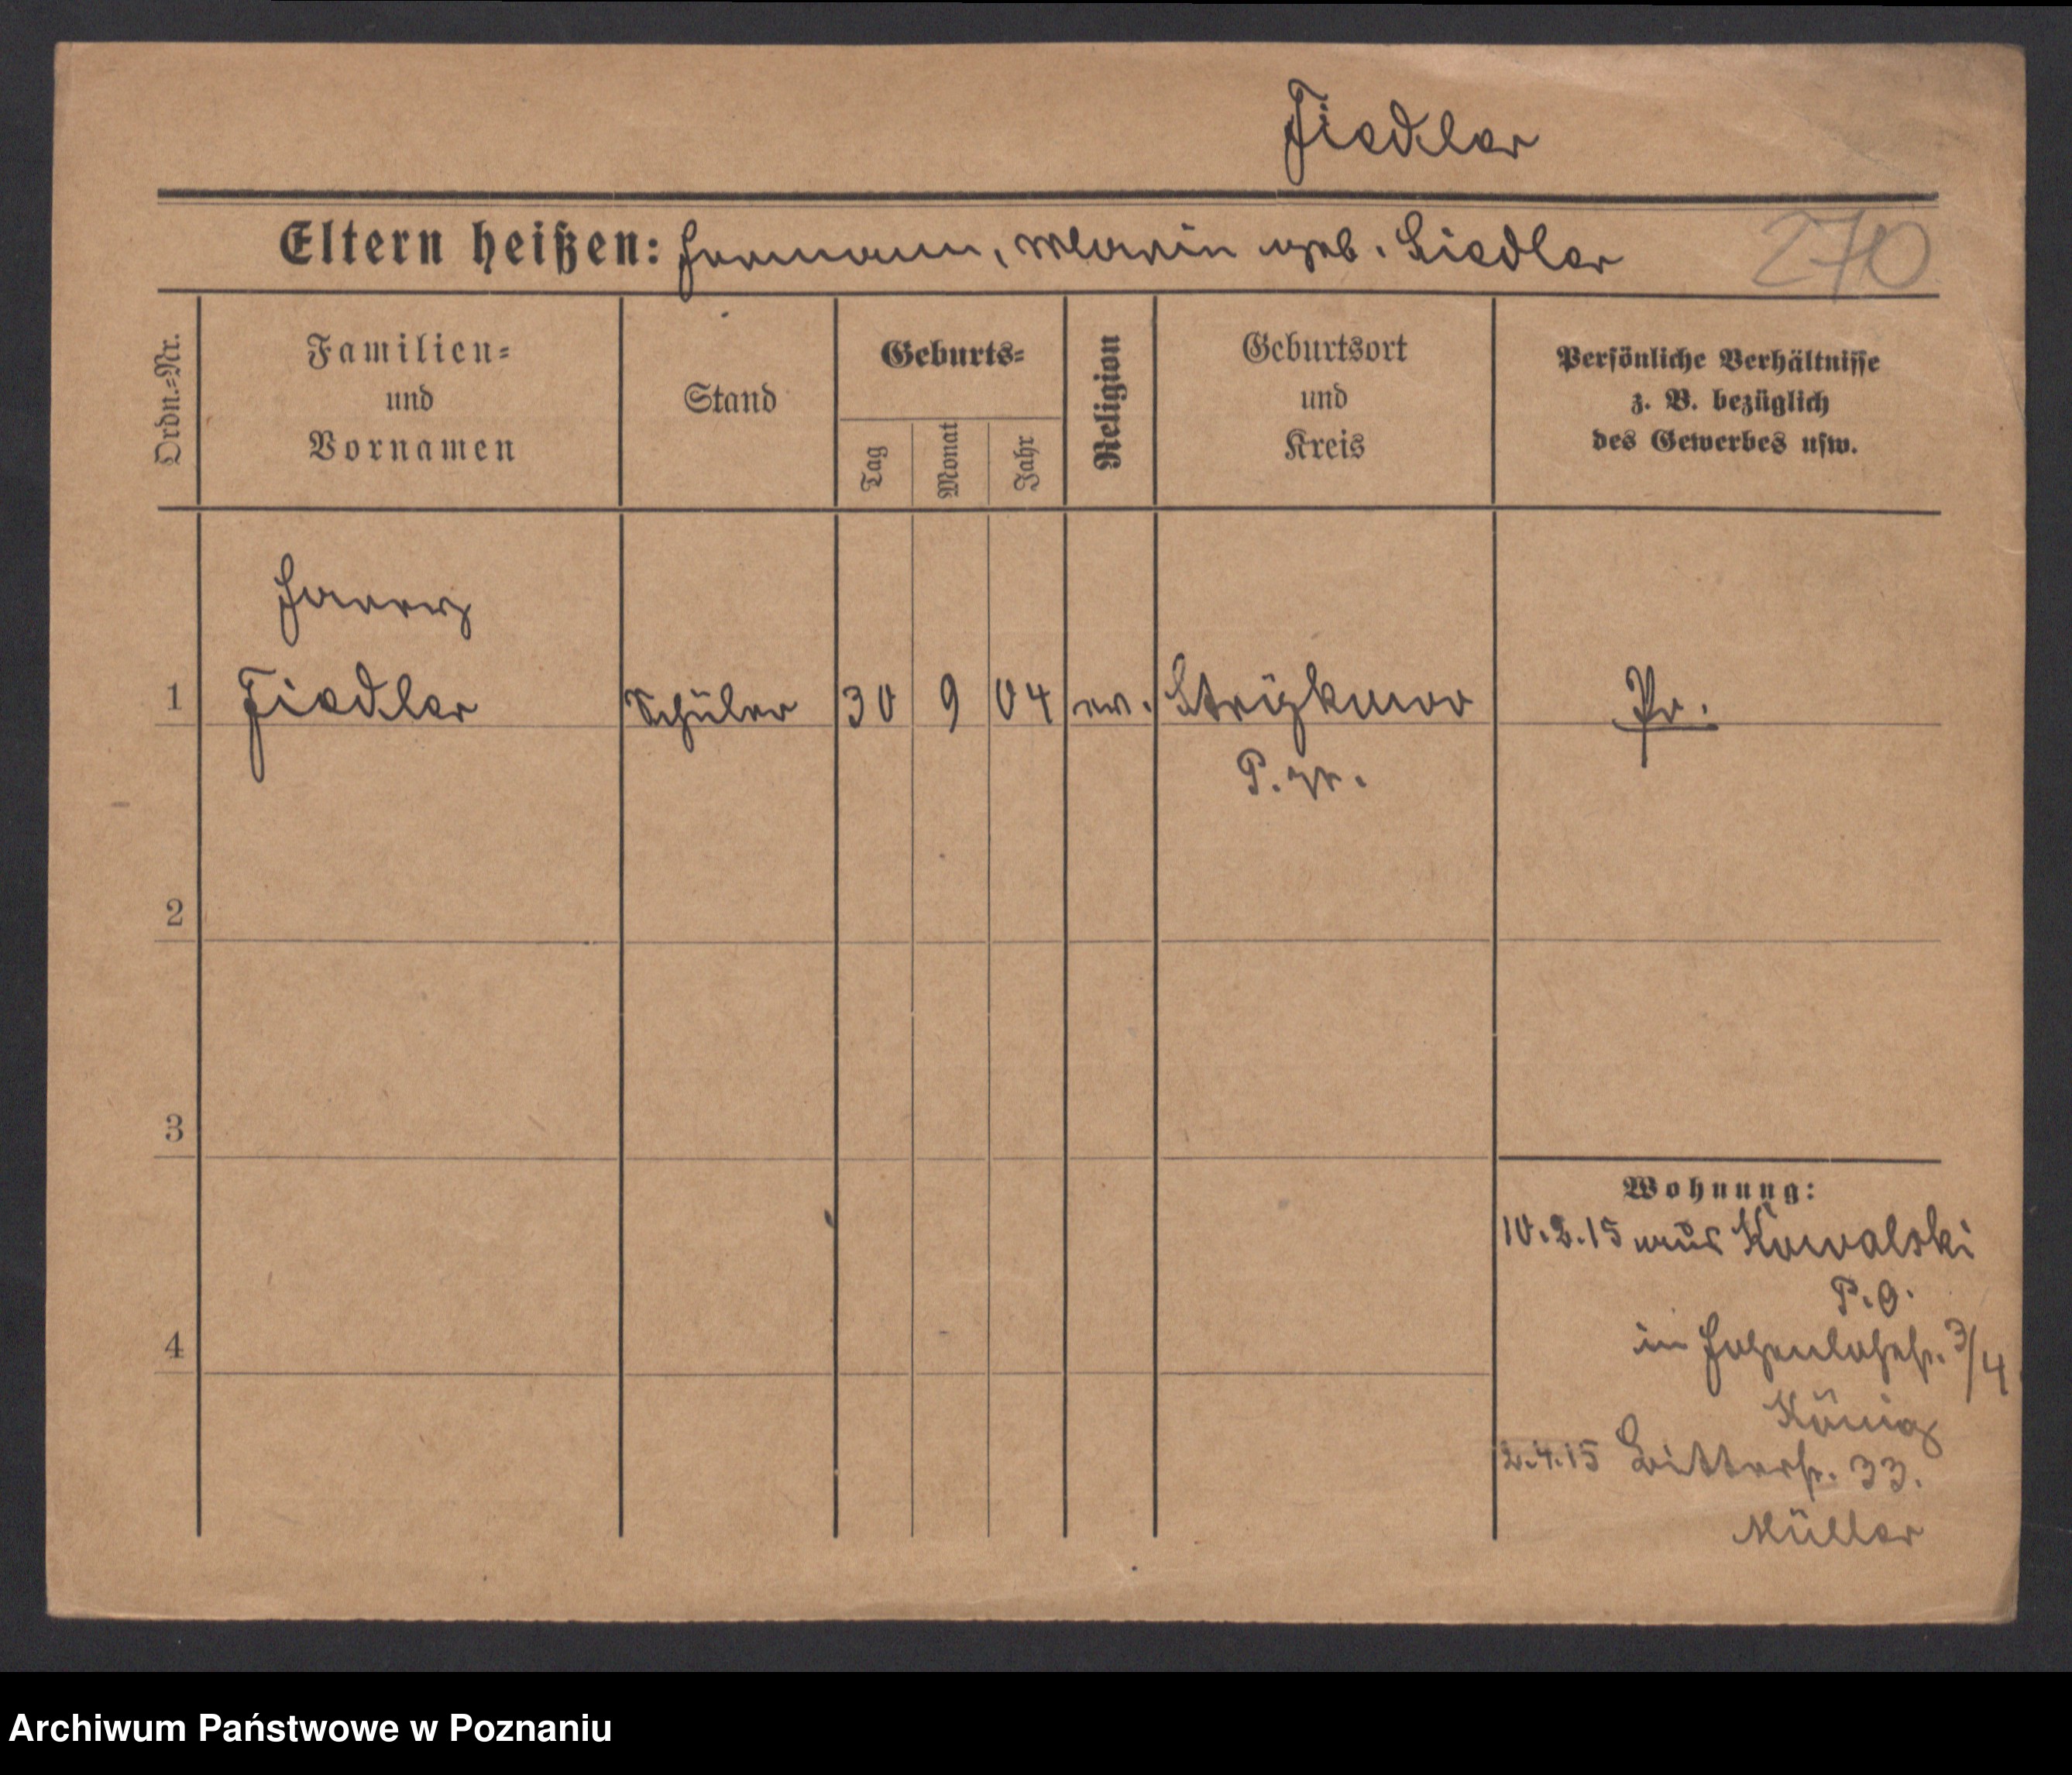 Fiedler
Eltern heißen: Hermann, Marie geb. Liedler
270
Ordn.-Nr.
Familien-
und
Vornamen
Stand
Geburts-
Tag
Monat
Jahr
Religion
Geburtsort
und
Kreis
Persönliche Verhältnisse
z. B. bezüglich
des Gewerbes usw.
Harry
1 Fiedler Schüler 30 9 04 ev. Pr.
2
3
4
Wohnung:
10.2.15 aus Kowalski
P. O.
in Hohenlohestr. 3/4
König
2.4.15 Ritterstr. 33.
Müller
Archiwum Państwowe w Poznaniu